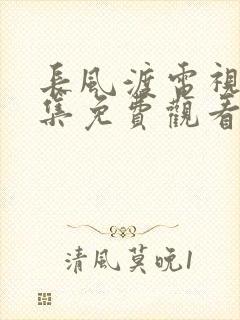 長風渡電視
集免費觀看
清風莫晚1